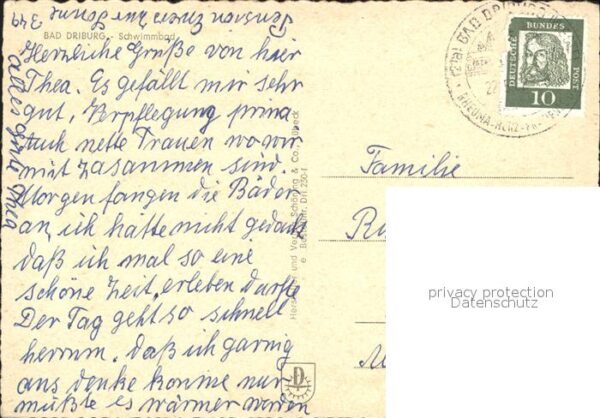 Pension Zur Sonne 349
BAD DRIBURG - Schwimmbad
Herzliche Grüße von hier
Thea. Es gefällt mir sehr
gut, Verpflegung prima
Auch nette Frauen wo wir
mit zusammen sind.
Morgen fangen die Bäder
an, ich hätte nicht gedacht
daß ich mal so eine
schöne Zeit, erleben durfte
Der Tag geht so schnell
herrum. daß ich garnig
ans denke komme nur
müßte es wärmer werden
alles gute Thea
Schöning & Co., Lübeck
Familie
(21a) BAD DRIBURG
RHEUMA-HERZ-
DEUTSCHE
BUNDES
POST
10
privacy protection
Datenschutz